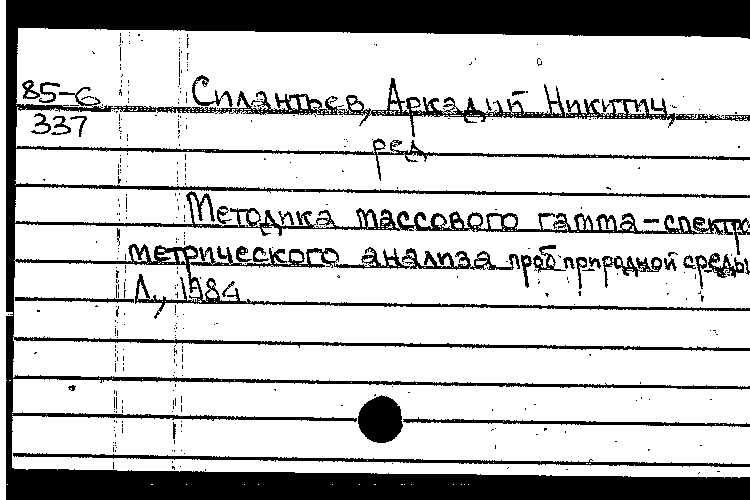 85-6
337
Силантьев, Аркадий Никитич,
ред
Методика массового гамма-спектро
метрического анализа проб природной среды
Л., 1984